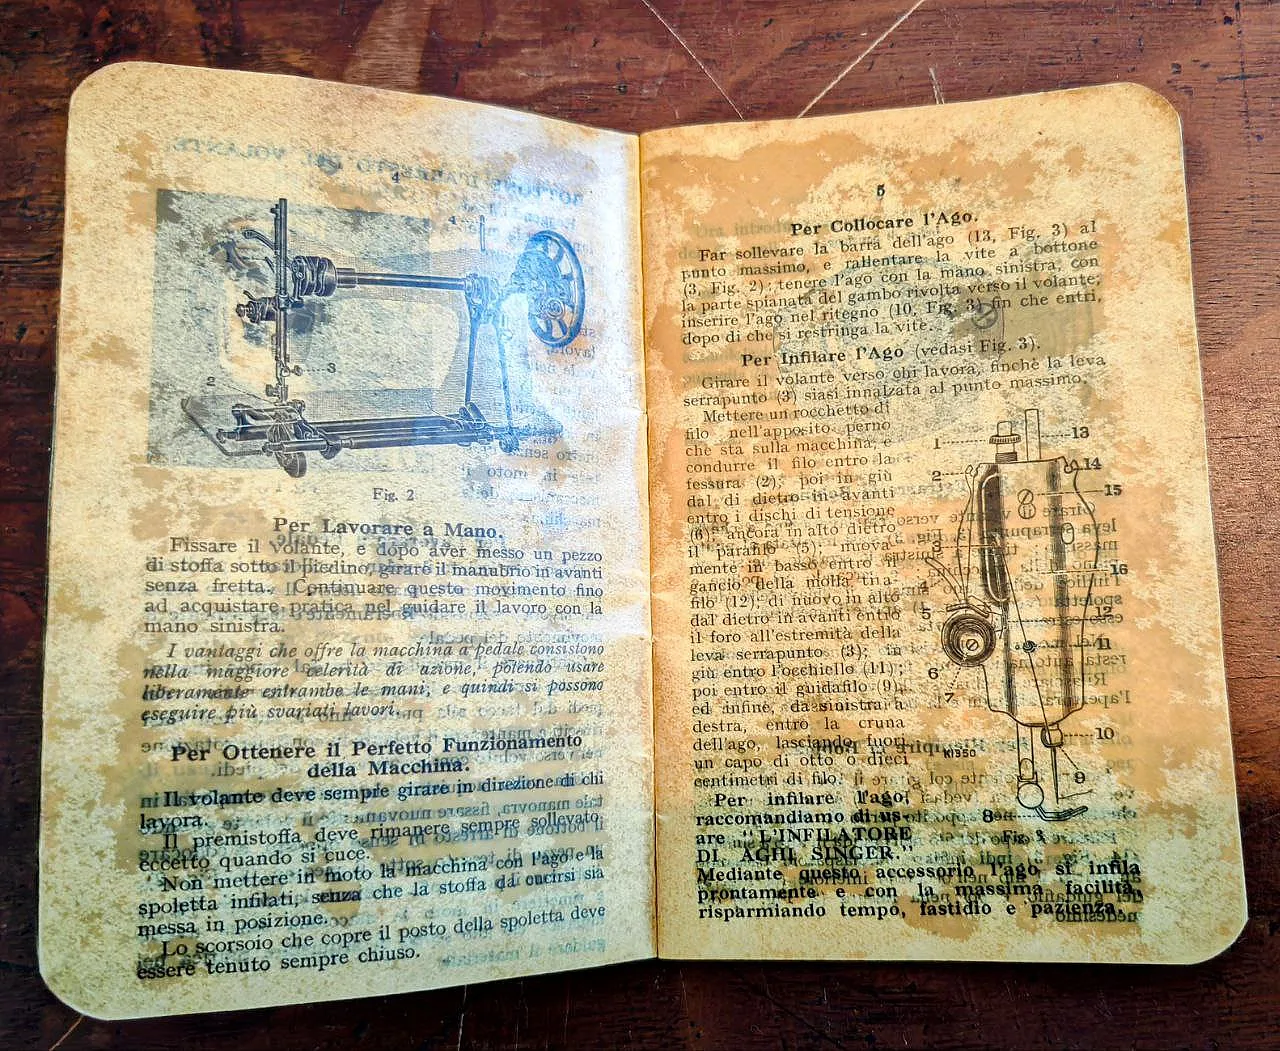 4
4
1
2
3
Fig. 2
Per Lavorare a Mano.
Fissare il volante, e dopo aver messo un pezzo
di stoffa sotto il piedino, girare il manubrio in avanti
senza fretta. Continuare questo movimento fino
ad acquistare pratica nel guidare il lavoro con la
mano sinistra.
I vantaggi che offre la macchina a pedale consistono
nella maggiore celerità di azione, potendo usare
liberamente entrambe le mani, e quindi si possono
eseguire più svariati lavori.
Per Ottenere il Perfetto Funzionamento
della Macchina.
Il volante deve sempre girare in direzione di chi
lavora.
Il premistoffa deve rimanere sempre sollevato,
eccetto quando si cuce.
Non mettere in moto la macchina con l'ago e la
spoletta infilati, senza che la stoffa da cucirsi sia
messa in posizione.
Lo scorsoio che copre il posto della spoletta deve
essere tenuto sempre chiuso.
5
Per Collocare l'Ago.
Far sollevare la barra dell'ago (13, Fig. 3) al
punto massimo, e rallentare la vite a bottone
(3, Fig. 2); tenere l'ago con la mano sinistra, con
la parte spianata del gambo rivolta verso il volante,
inserire l'ago nel ritegno (10, Fig. 3) fin che entri,
dopo di che si restringa la vite.
Per Infilare l'Ago (vedasi Fig. 3).
Girare il volante verso chi lavora, finchè la leva
serrapunto (3) siasi innalzata al punto massimo.
Mettere un rocchetto di
filo nell'apposito perno
che sta sulla macchina, e
condurre il filo entro la
fessura (2); poi in giù
dal di dietro in avanti
entro i dischi di tensione
(6); ancora in alto dietro
il parafilo (5); nuova-
mente in basso entro il
gancio della molla tira-
filo (12); di nuovo in alto
dal dietro in avanti entro
il foro all'estremità della
leva serrapunto (3); in
giù entro l'occhiello (11);
poi entro il guidafilo (9)
ed infine, da sinistra a
destra, entro la cruna
dell'ago, lasciando fuori
un capo di otto o dieci
centimetri di filo.
Per infilare l'ago
raccomandiamo di us-
are "L'INFILATORE
DI AGHI SINGER."
Mediante questo accessorio l'ago si infila
prontamente e con la massima facilità,
risparmiando tempo, fastidio e pazienza.
1
13
2
14
15
3
16
4
5
12
11
6
7
10
K1350
9
8
Fig. 3